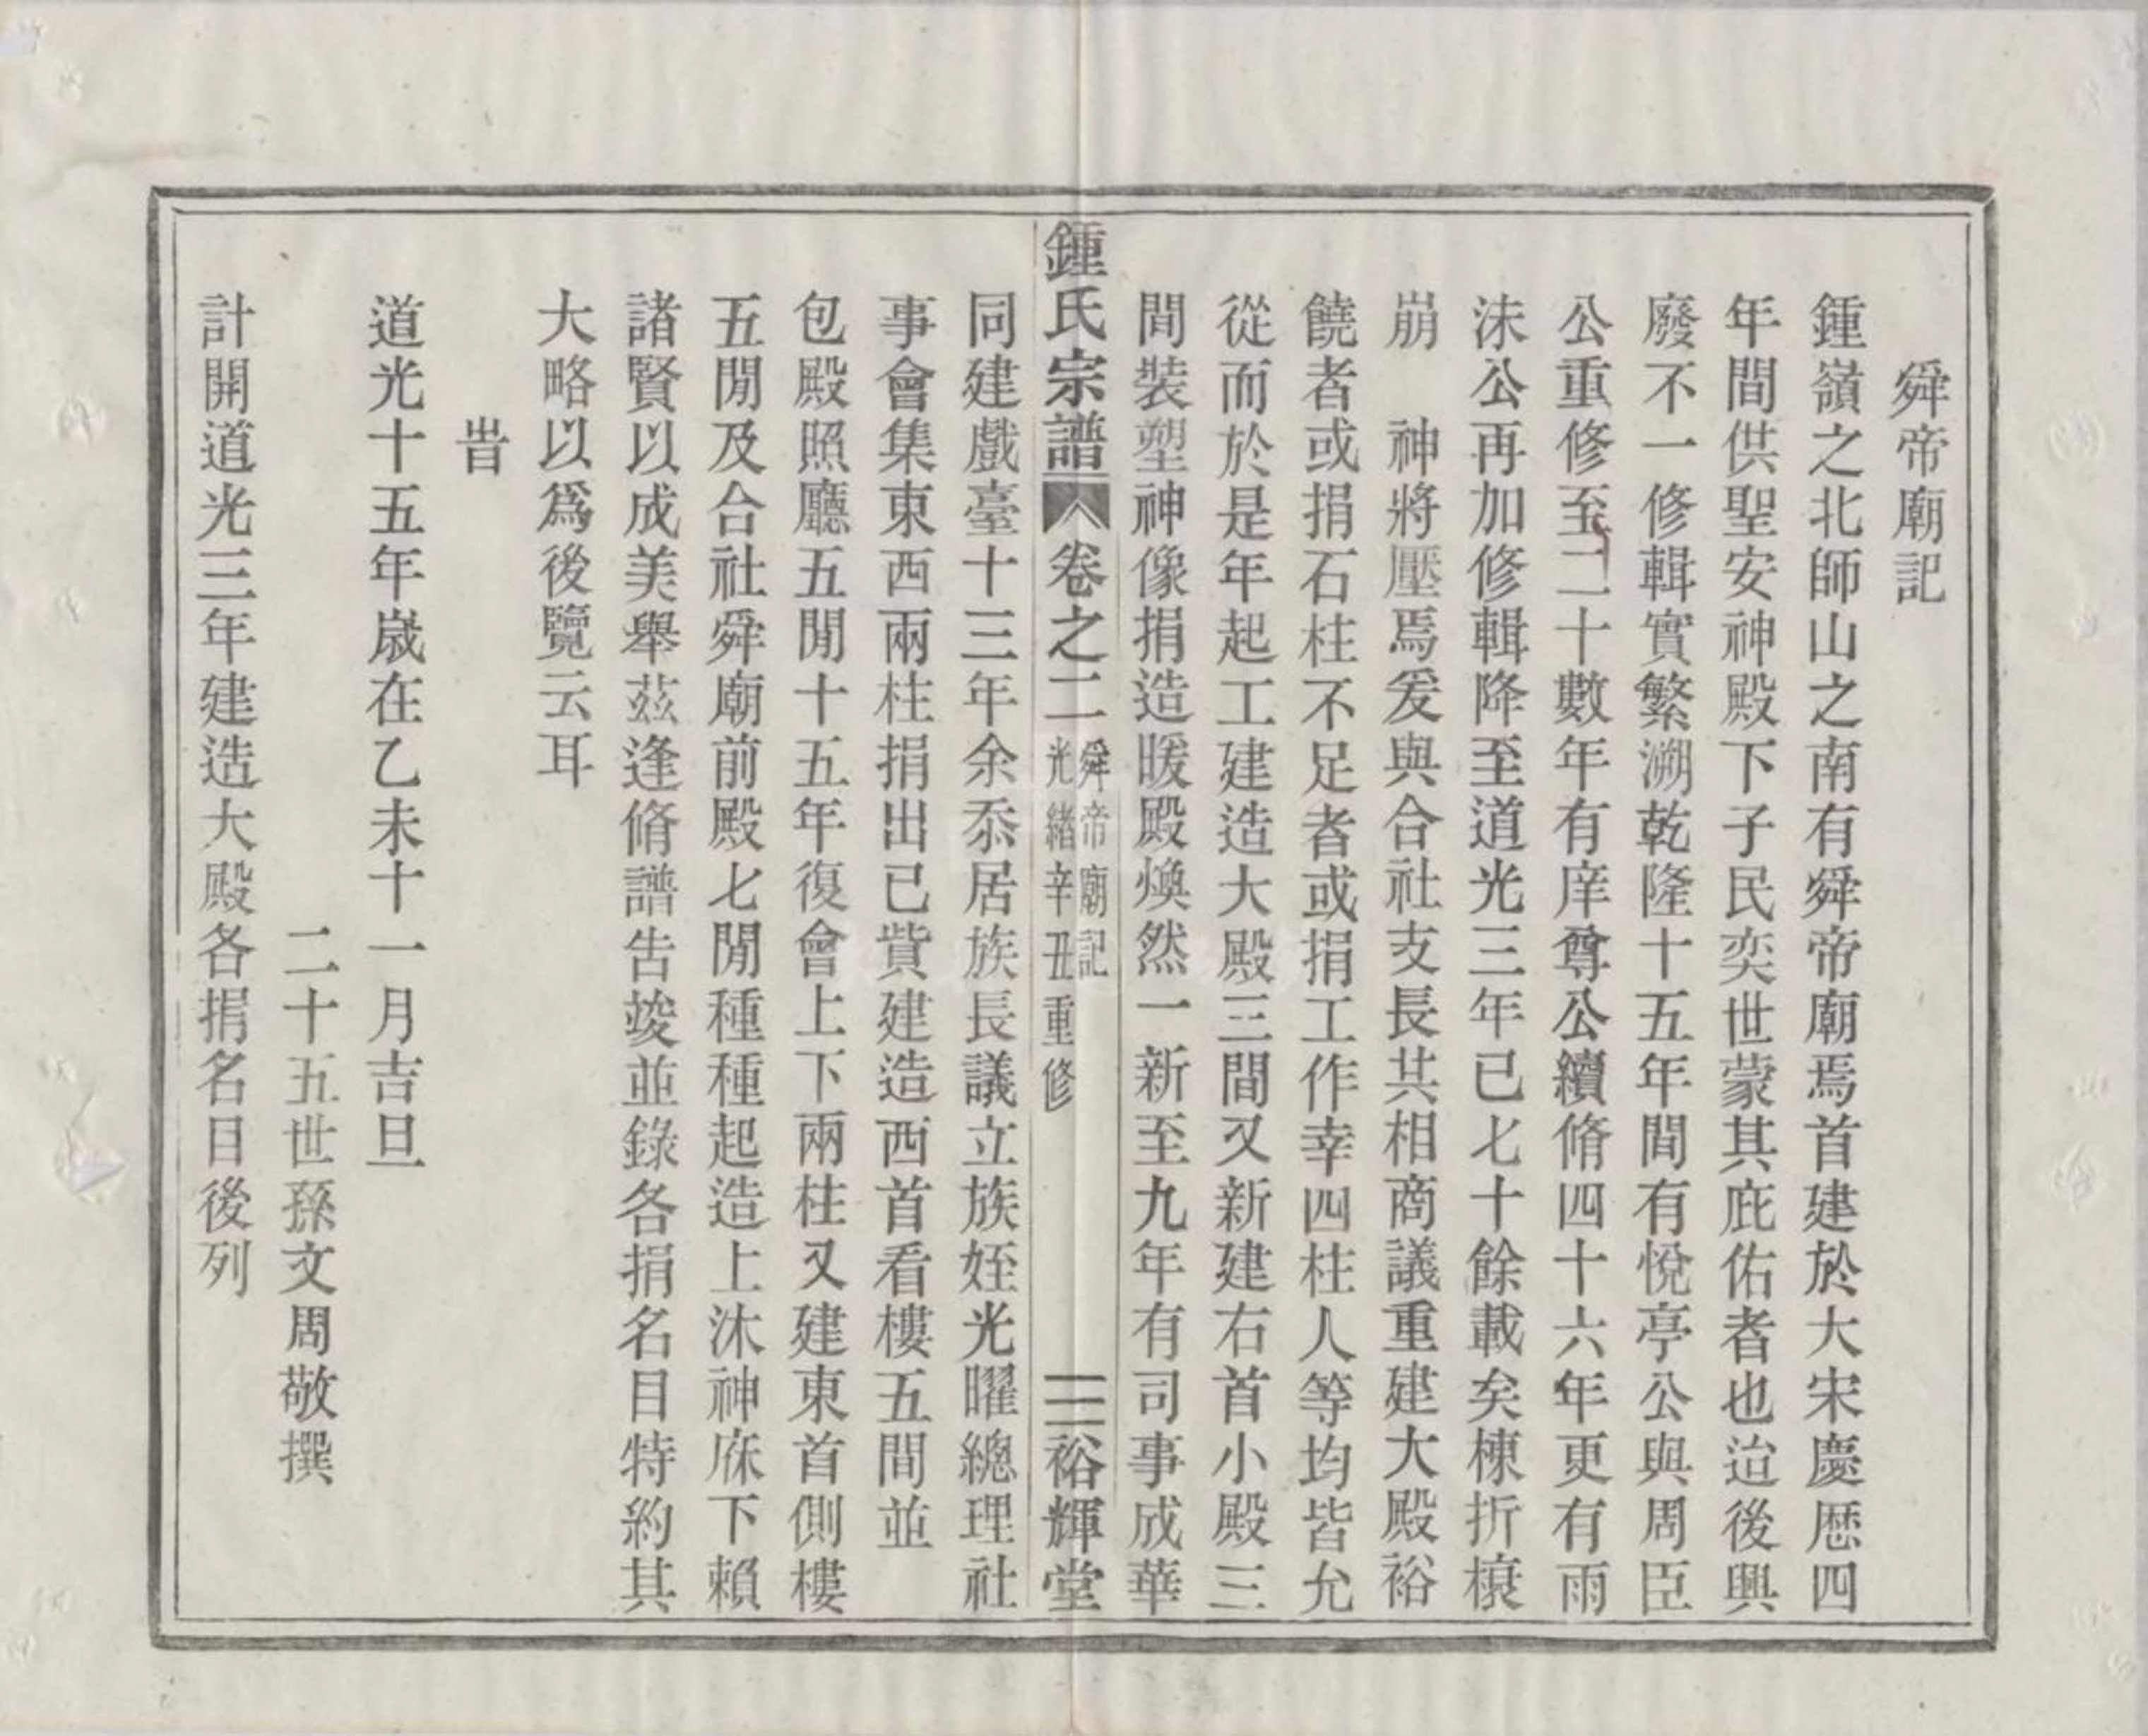 舜帝廟記
鍾嶺之北師山之南有舜帝廟焉首建於大宋慶歷四
年間供聖安神殿下子民奕世蒙其庇佑者也迨後興
廢不一修輯實繁溯乾隆十五年間有悅亭公與周臣
公重修至二十數年有庠尊公續脩四十六年更有雨
沬公再加修輯降至道光三年已七十餘載矣棟折榱
崩　神將壓焉爰與合社支長共相商議重建大殿裕
饒者或捐石柱不足者或捐工作幸四柱人等均皆允
從而於是年起工建造大殿三間又新建右首小殿三
間裝塑神像捐造暖殿煥然一新至九年有司事成華
鍾氏宗譜
卷之二
舜帝廟記
光緒辛丑重修
三
裕輝堂
同建戲臺十三年余忝居族長議立族姪光曜總理社
事會集東西兩柱捐出已貲建造西首看樓五間並
包殿照廳五間十五年復會上下兩柱又建東首側樓
五間及合社舜廟前殿七間種種起造上沐神庥下賴
諸賢以成美舉茲逢脩譜告竣並錄各捐名目特約其
大略以為後覽云耳
旹
道光十五年歲在乙未十一月吉旦
二十五世孫文周敬撰
計開道光三年建造大殿各捐名目後列